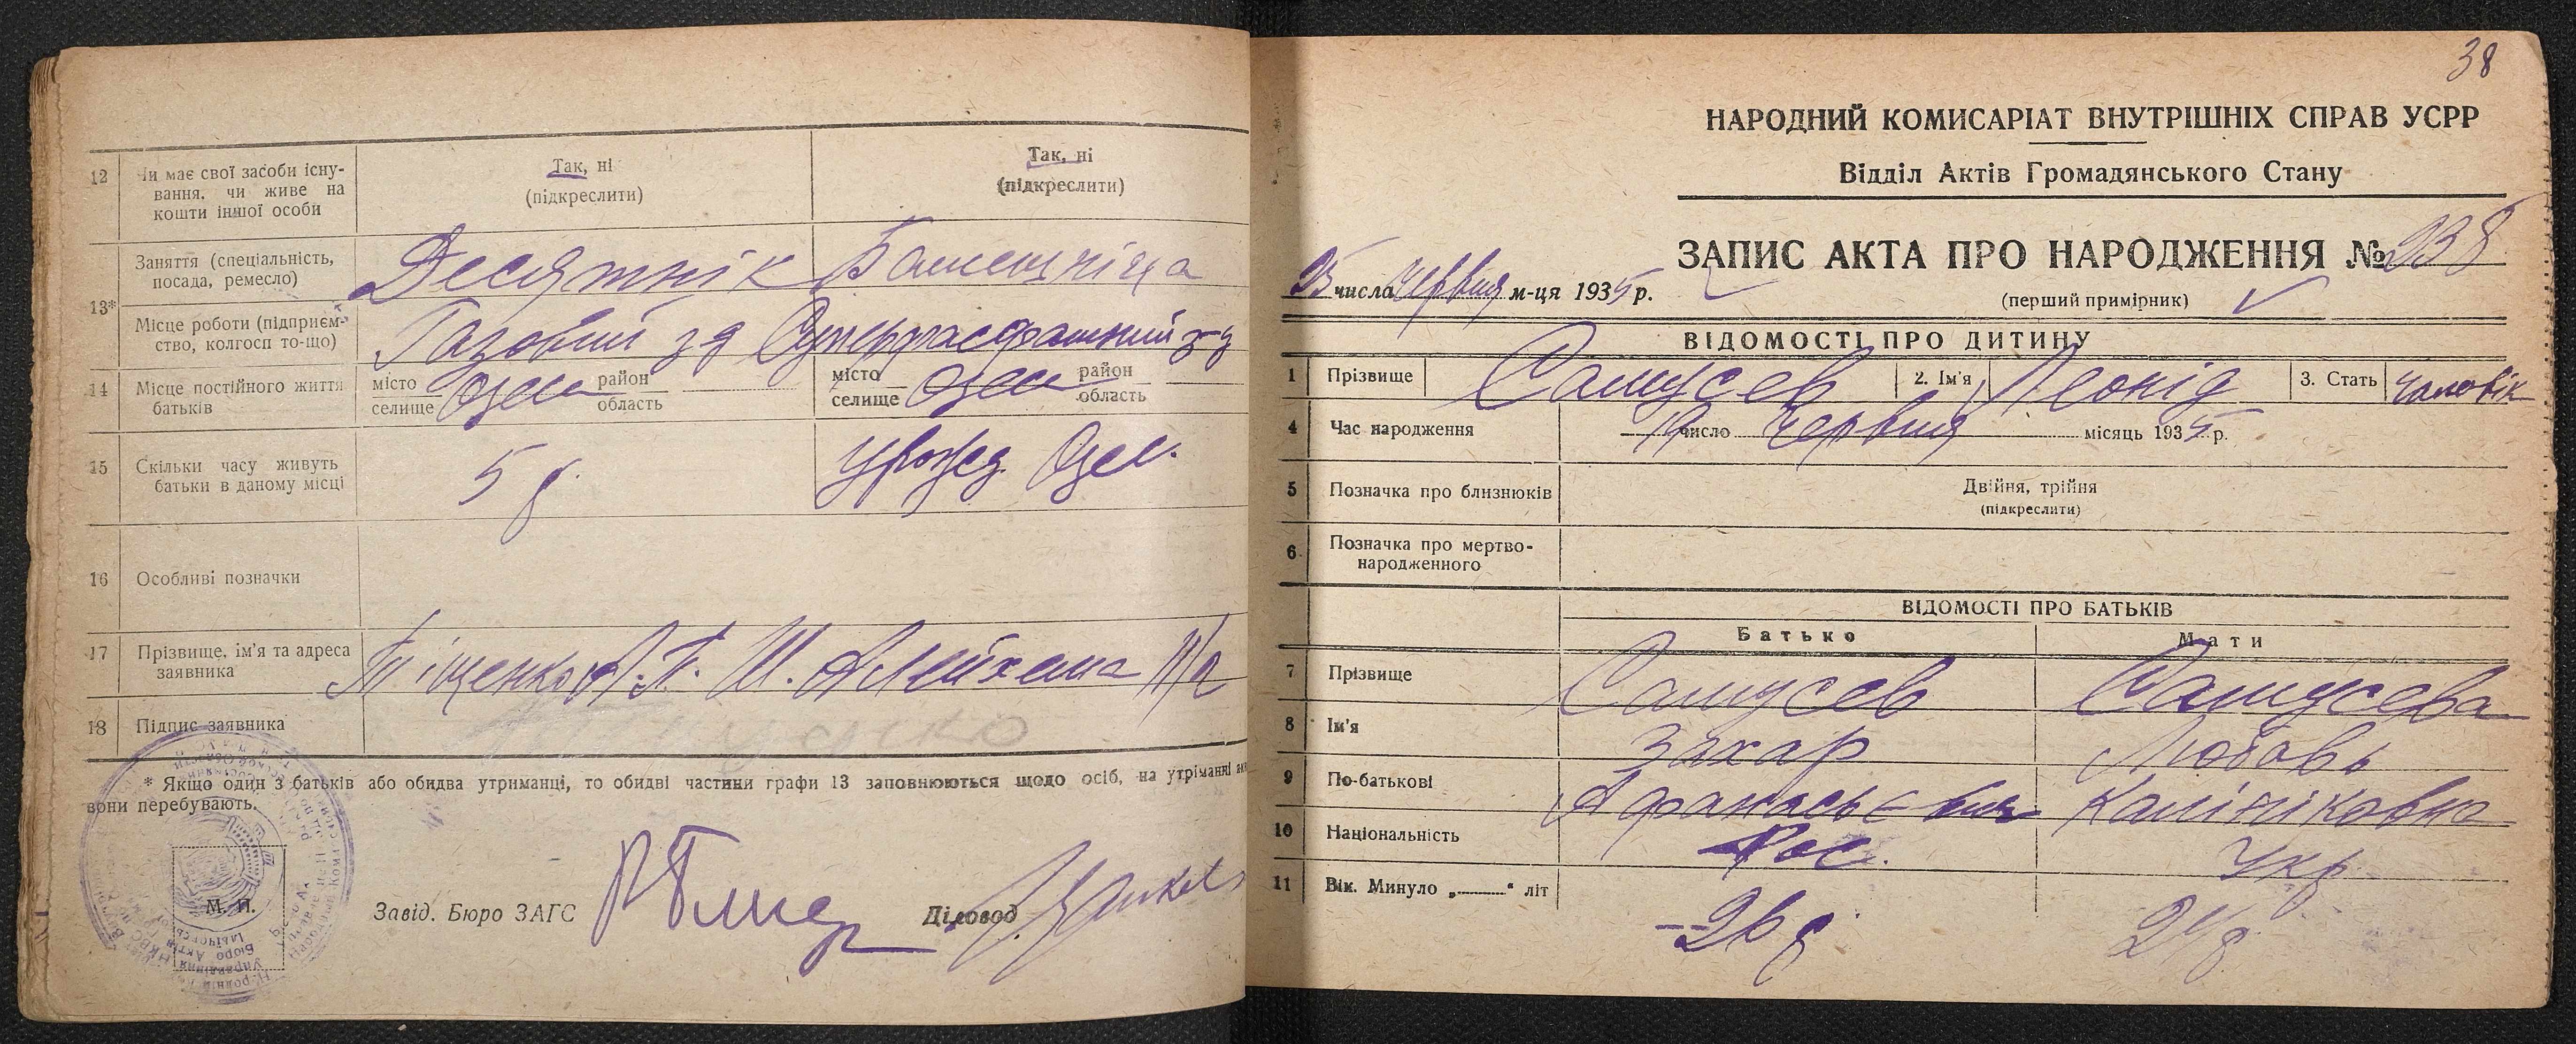 12 Чи має свої засоби існу-
вання, чи живе на
кошти іншої особи
Так, ні
(підкреслити)
Так, ні
(підкреслити)
13*
Заняття (спеціальність,
посада, ремесло)
Десятнік
Місце роботи (підприєм-
ство, колгосп то-що)
Газовий зд Суперфасфатний з-д
14 Місце постійного життя
батьків
місто
селище
Одеса
район
область
місто
селище
Одеса
район
область
15 Скільки часу живуть
батьки в даному місці
5 р.
урожд. Одес.
16 Особливі позначки
17 Прізвище, ім'я та адреса
заявника
Тіщенко А. П. Ш. Алейхема
18 Підпис заявника
* Якщо один з батьків або обидва утриманці, то обидві частини графи 13 заповнюються щодо осіб, на утриманні яких
вони перебувають.
М. П.
Завід. Бюро ЗАГС
Діловод
38
НАРОДНИЙ КОМИСАРІАТ ВНУТРІШНІХ СПРАВ УСРР
Відділ Актів Громадянського Стану
ЗАПИС АКТА ПРО НАРОДЖЕННЯ № 238
25 числа червня м-ця 1935 р.
(перший примірник)
ВІДОМОСТІ ПРО ДИТИНУ
1 Прізвище Самусев 2. Ім'я Леонід 3. Стать чоловік
4 Час народження 19 число червня місяць 1935 р.
5 Позначка про близнюків
Двійня, трійня
(підкреслити)
6 Позначка про мертво-
народженного
ВІДОМОСТІ ПРО БАТЬКІВ
Батько Мати
7 Прізвище Самусев Самусева
8 Ім'я Захар Любовь
9 По-батькові Афанасьєвич Калініковна
10 Національність Рос. Укр
11 Вік. Минуло „ “ літ 26 р. 24 р.